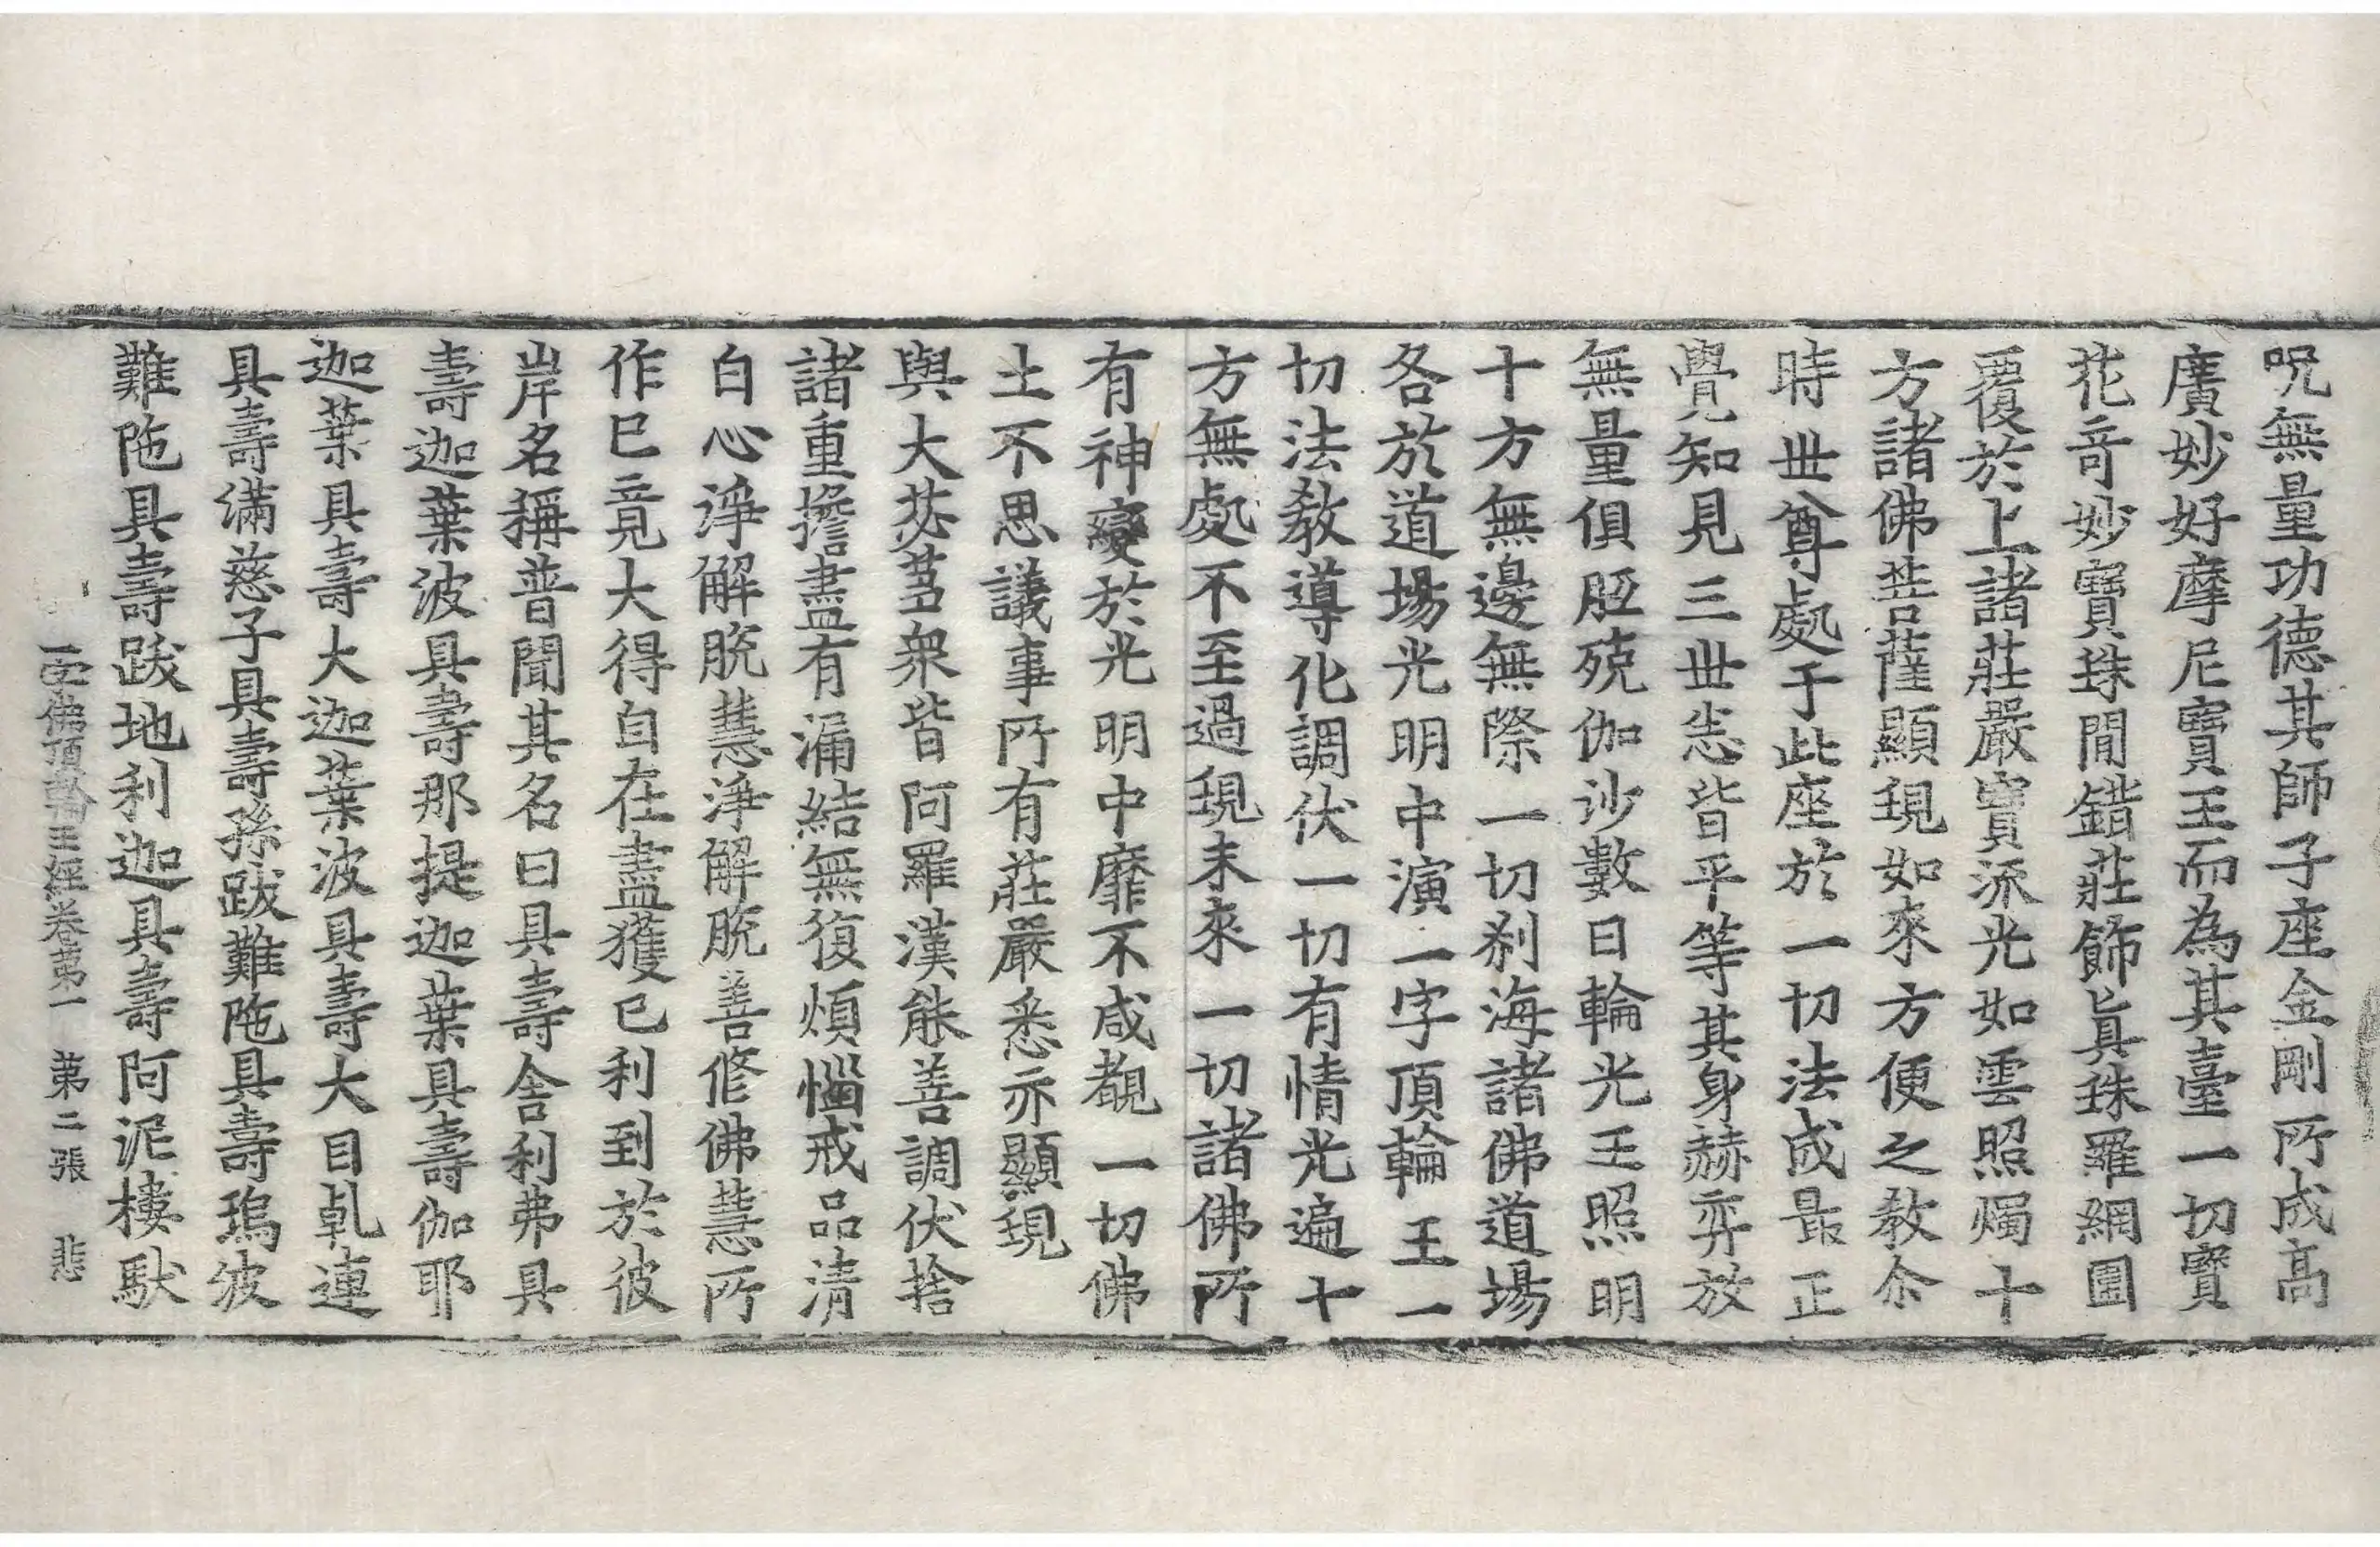 呪無量功德其師子座金剛所成高
廣妙好摩尼寶王而為其臺一切寶
花奇妙寶珠間錯莊飾眞珠羅網圍
覆於上諸莊嚴寶流光如雲照燭十
方諸佛菩薩顯現如來方便之教令
時世尊處于此座於一切法成最正
覺知見三世悉皆平等其身赫弈放
無量俱胝殑伽沙數日輪光王照明
十方無邊無際一切刹海諸佛道場
各於道場光明中演一字頂輪王一
切法教導化調伏一切有情光遍十
方無處不至過現未來一切諸佛所
有神變於光明中靡不咸覩一切佛
土不思議事所有莊嚴悉亦顯現
與大苾芻衆皆阿羅漢能善調伏捨
諸重擔盡有漏結無復煩惱戒品清
白心淨解脫慧淨解脫善修佛慧所
作已竟大得自在盡獲已利到於彼
岸名稱普聞其名曰具壽舍利弗具
壽迦葉波具壽那提迦葉具壽伽耶
迦葉具壽大迦葉波具壽大目乹連
具壽滿慈子具壽孫跋難陁具壽鄔波
難陁具壽跋地利迦具壽阿泥樓馱
一字佛頂輪王經卷第一　第二張　悲